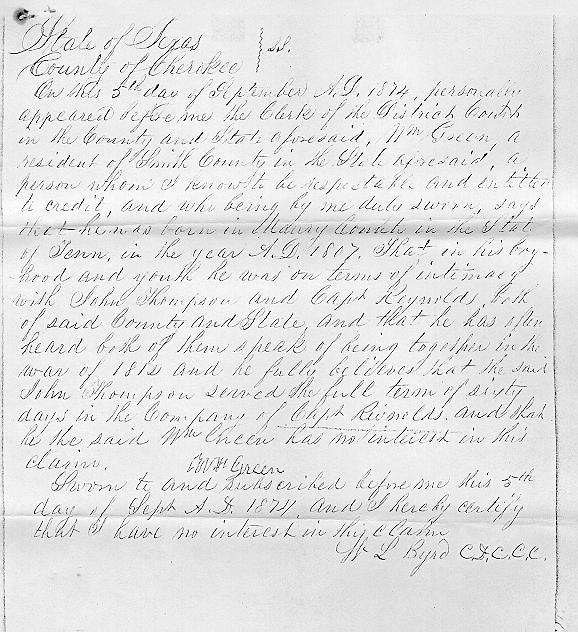 State of Texas
County of Cherokee } SS.
On this 5th day of September A.D. 1874, personally
appeared before me the Clerk of the District Court
in the County and State aforesaid, Wm Green, a
resident of Smith County in the State aforesaid, a
person whom I know to be respectable and intitled
to credit, and who being by me duly sworn, says
that he was born in Maury County in the State
of Tenn, in the year A.D. 1807. That in his boy-
hood and youth he was on terms of intimacy
with John Thompson and Capt Reynolds, both
of said County and State, and that he has often
heard both of them speak of being together in the
war of 1812 and he fully believes that the said
John Thompson served the full term of sixty
days in the Company of Capt Reynolds. and that
he the said Wm Green has no interest in this
claim.
Wm Green
Sworn to and subscribed before me this 5th
day of Sept A.D. 1874, and I hereby certify
that I have no interest in this claim
W L Byrd C.D.C.C.C.